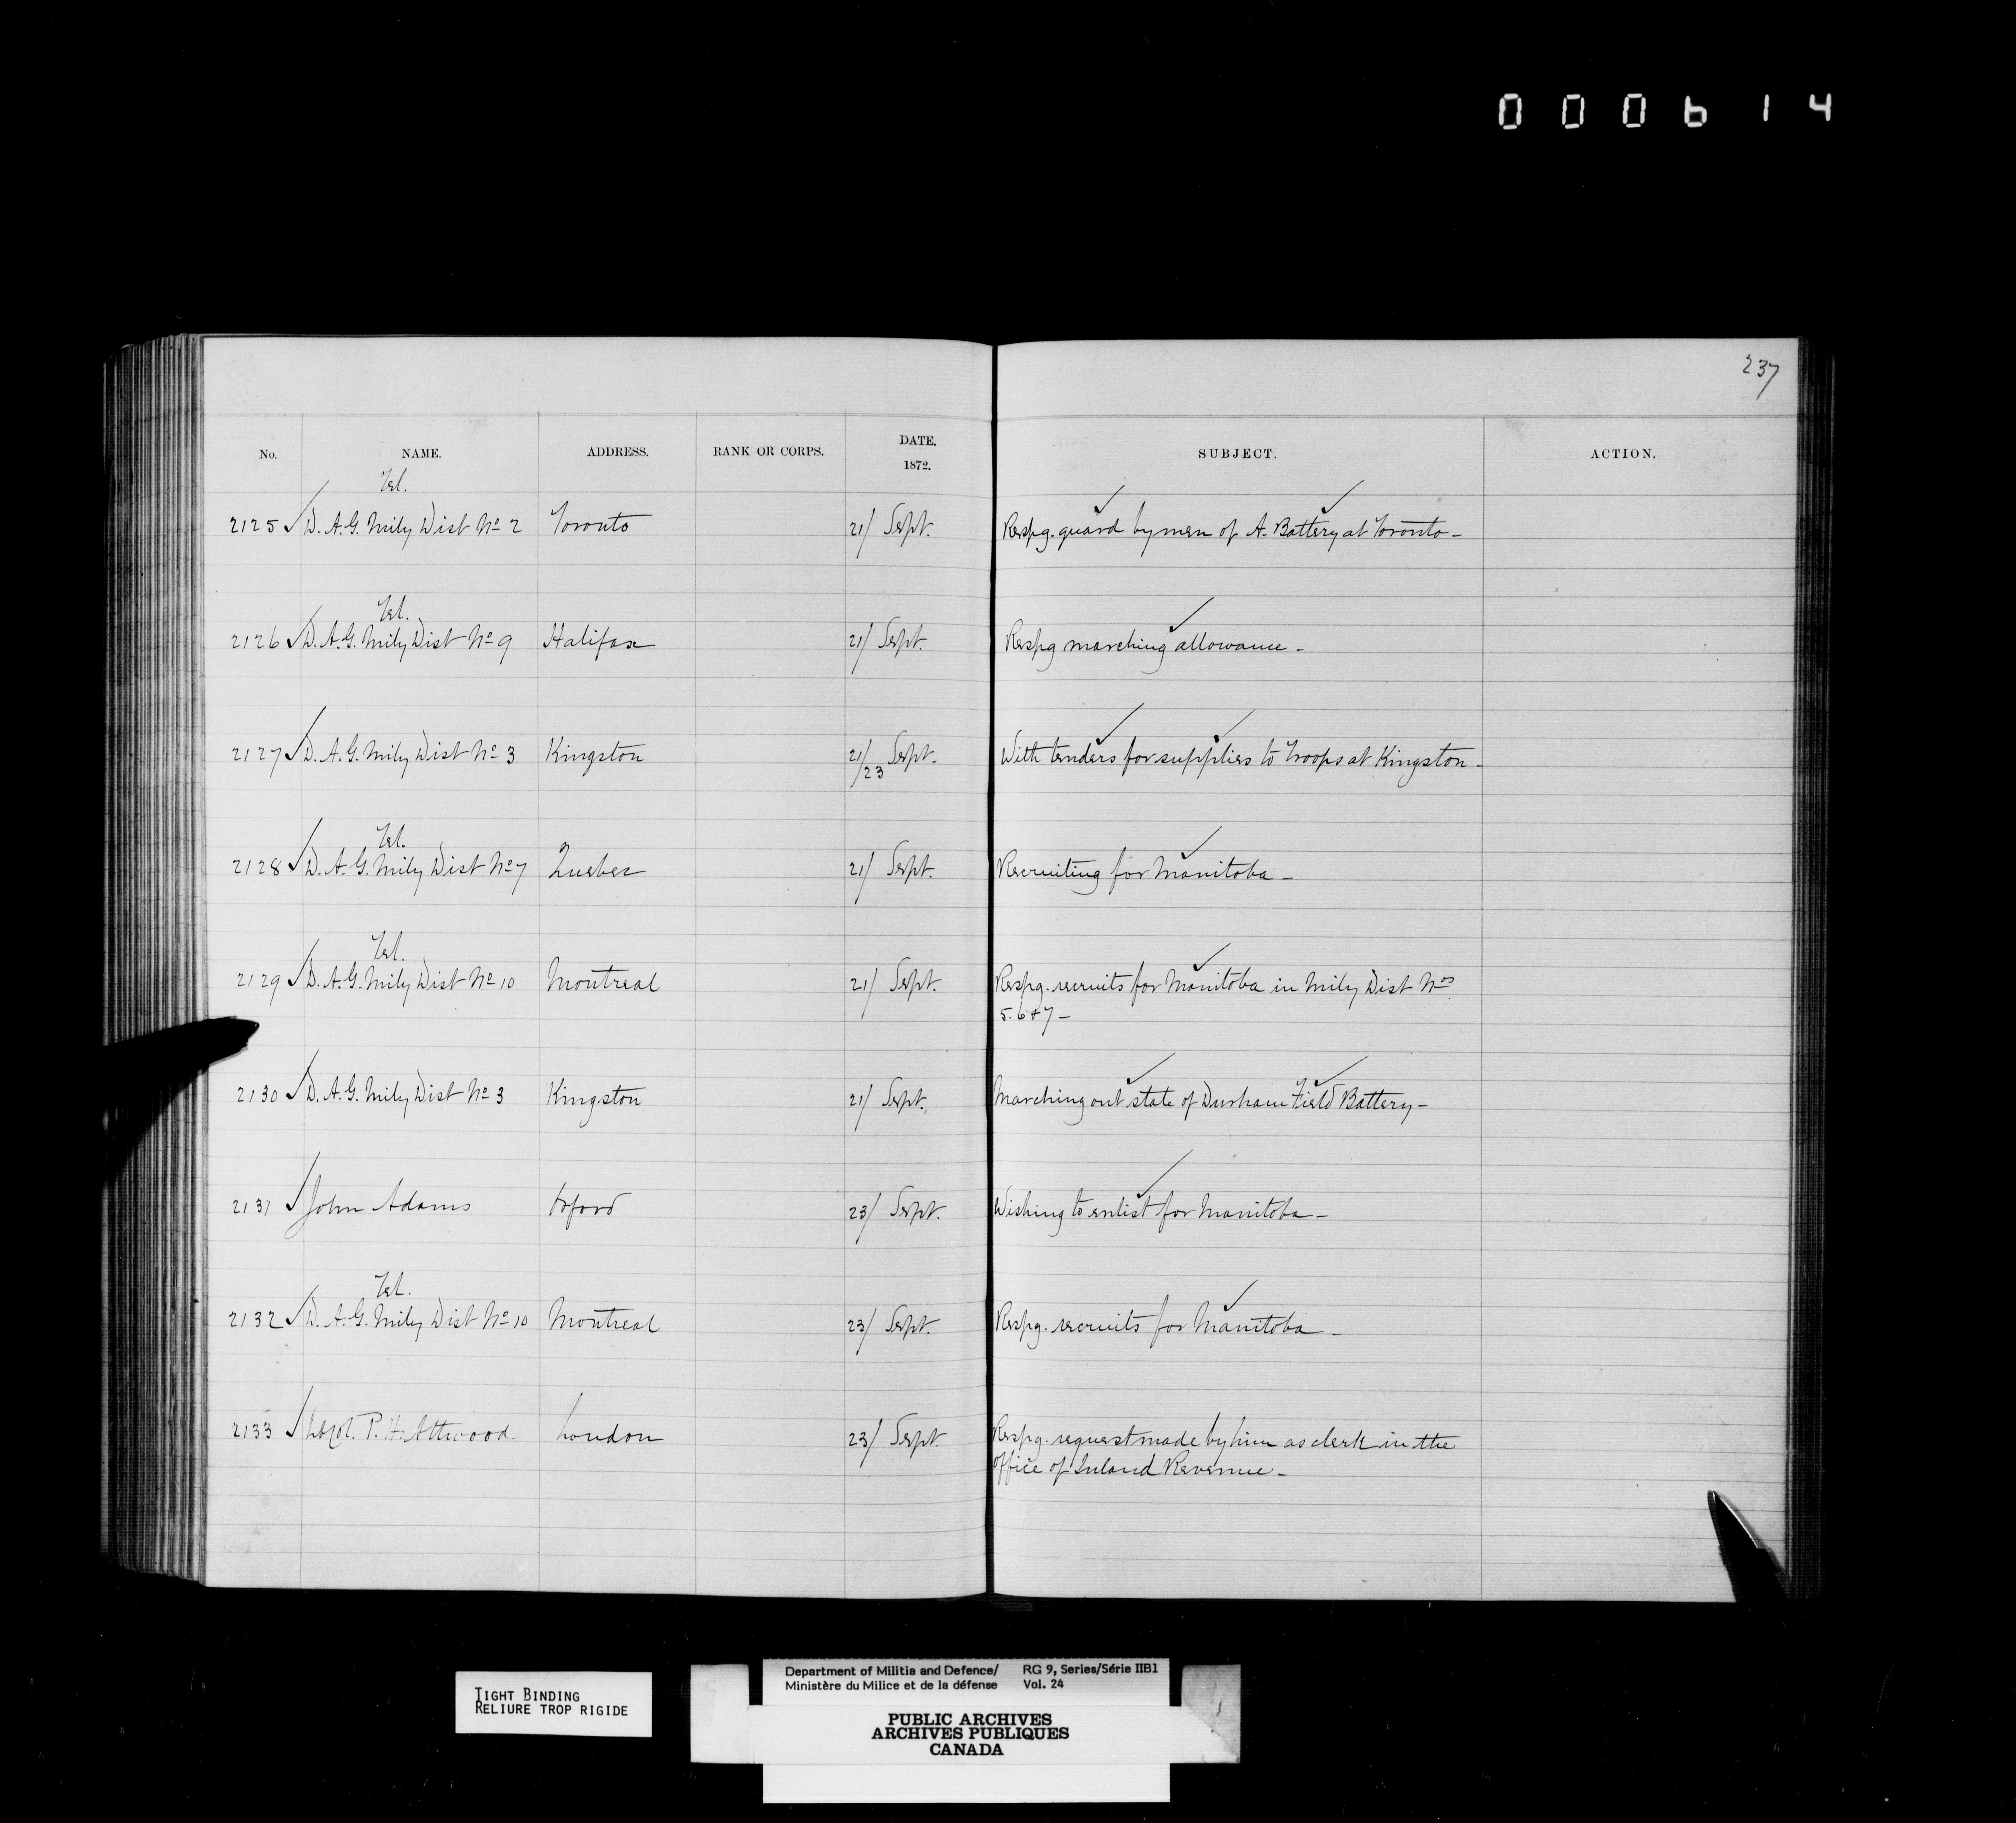 000614
237
No. NAME. ADDRESS. RANK OR CORPS. DATE. 1872. SUBJECT. ACTION.
Tel.
2125 D. A. G. Mily Dist No 2 Toronto 21/ Sept. Respg. guard by men of A. Battery at Toronto -
Tel.
2126 D. A. G. Mily Dist No 9 Halifax 21/ Sept. Respg marching allowance -
2127 D. A. G. Mily Dist No 3 Kingston 21/23 Sept. With tenders for supplies to Troops at Kingston -
Tel.
2128 D. A. G. Mily Dist No 7 Quebec 21/ Sept. Recruiting for Manitoba -
Tel.
2129 D. A. G. Mily Dist No 10 Montreal 21/ Sept. Respg. recruits for Manitoba in Mily Dist Nos
5. 6 & 7 -
2130 D. A. G. Mily Dist No 3 Kingston 21/ Sept. Marching out state of Durham Field Battery -
2131 John Adams 23/ Sept. Wishing to enlist for Manitoba -
Tel.
2132 D. A. G. Mily Dist No 10 Montreal 23/ Sept. Respg. recruits for Manitoba -
2133 P. H. Attwood. London 23/ Sept. Respg. request made by him as clerk in the
office of Inland Revenue -
TIGHT BINDING
RELIURE TROP RIGIDE
Department of Militia and Defence/ RG 9, Series/Série IIB1
Ministère du Milice et de la défense Vol. 24
PUBLIC ARCHIVES
ARCHIVES PUBLIQUES
CANADA